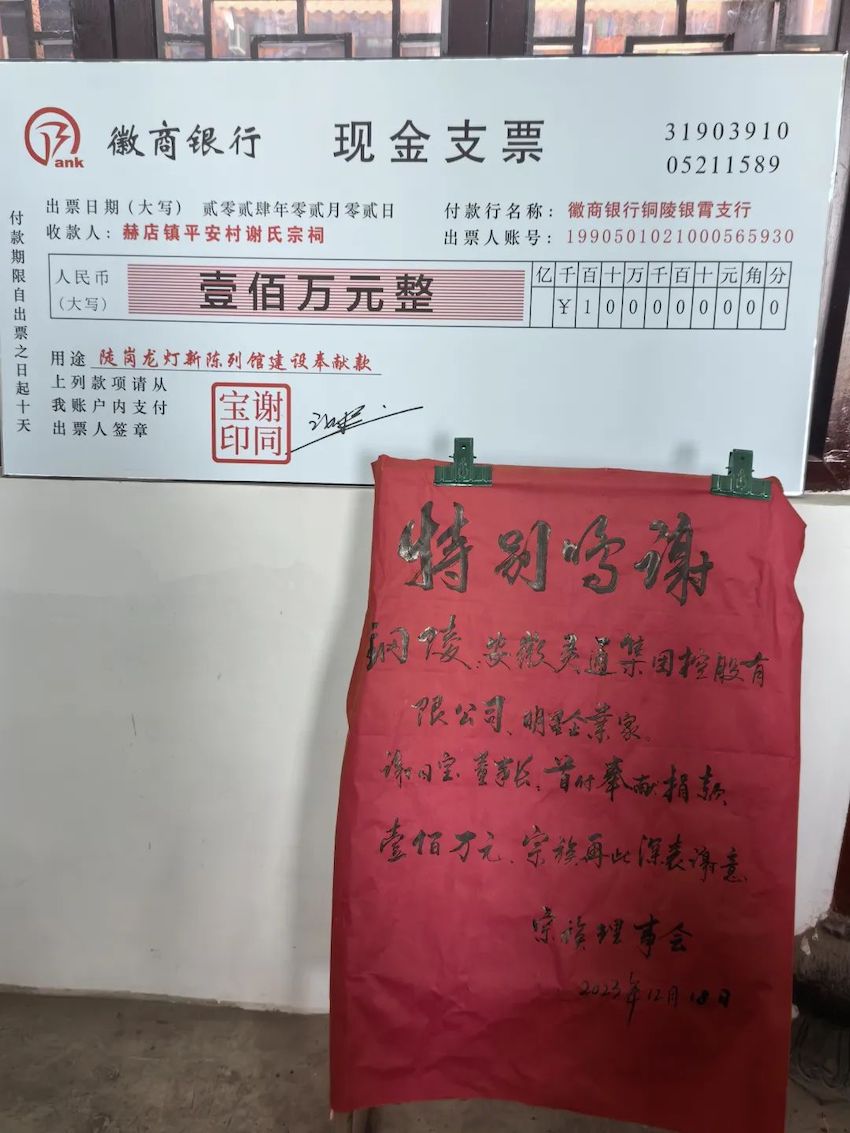 Bank 徽商银行 现金支票 31903910
05211589
出票日期(大写) 贰零贰肆年零贰月零贰日 付款行名称：徽商银行铜陵银霄支行
收款人：赫店镇平安村谢氏宗祠 出票人账号：1990501021000565930
付款期限自出票之日起十天
人民币（大写） 壹佰万元整
亿千百十万千百十元角分
¥100000000
用途 陡岗龙灯新陈列馆建设奉献款
上列款项请从
我账户内支付
出票人签章
谢同宝印
特别鸣谢
铜陵：安徽灵通集团控股有
限公司、明星企業家。
谢同宝董事长，首付奉献捐款，
壹佰万元、宗族再此深表谢意
宗族理事会
2023年12月18日